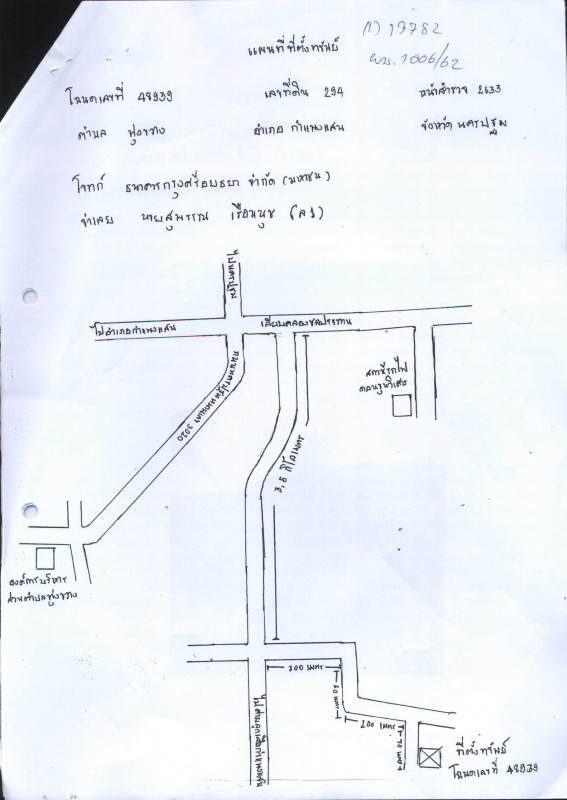 (1) 13782
ผบ. 1006/62
แผนที่ที่ตั้งทรัพย์
โฉนดเลขที่ 48939 เลขที่ดิน 294 หน้าสำรวจ 2633
ตำบล ทุ่งขวาง อำเภอ กำแพงแสน จังหวัด นครปฐม
โจทก์ ธนาคารกรุงศรีอยุธยา จำกัด (มหาชน)
จำเลย นายสุพรรณ เรือนนุช (ล1)
ไปนครปฐม
ไปอำเภอกำแพงแสน
เลียบคลองชลประทาน
3020
สถานีรถไฟ
3,6 กิโลเมตร
องค์การบริหาร
ส่วนตำบลทุ่งขวาง
300 เมตร
50 เมตร
200 เมตร
70 เมตร
ที่ตั้งทรัพย์
โฉนดเลขที่ 48939